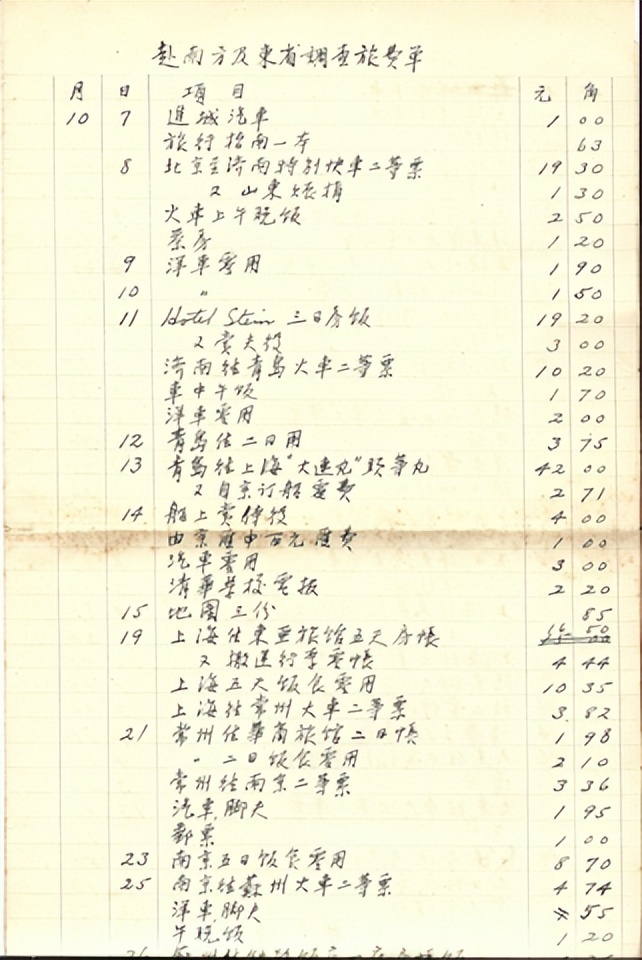 赴南方及東省調查旅費單
月 日 項目 元 角
10 7 進城汽車 1 00
旅行指南一本 63
8 北京至濟南特别快車二等票 19 30
又 山東賑捐 1 30
火車上午晚飯 2 50
茶房 1 20
9 洋車零用 1 90
10 〃 1 50
11 Hotel Stein 三日房飯 19 20
又賞夫役 3 00
濟南往青島火車二等票 10 20
車中午飯 1 70
洋車零用 2 00
12 青島住二日用 3 75
13 青島往上海"大連丸"頭等丸 42 00
又自京订船電費 2 71
14 船上賞侍役 4 00
由京匯中百元匯費 1 00
汽車零用 3 00
清華學校電报 2 20
15 地圖三份 85
19 上海住東亞旅馆五天房帳 50
又搬送行李零帳 4 44
上海五天饭食零用 10 35
上海往常州火車二等票 3.82
21 常州住華商旅馆二日帳 1 98
〃 二日饭食零用 2 10
常州往南京二等票 3 36
汽車,脚夫 1 95
郵票 1 00
23 南京五日饭食零用 8 70
25 南京往蘇州火車二等票 4 74
洋車,脚夫 55
午晚饭 1 20